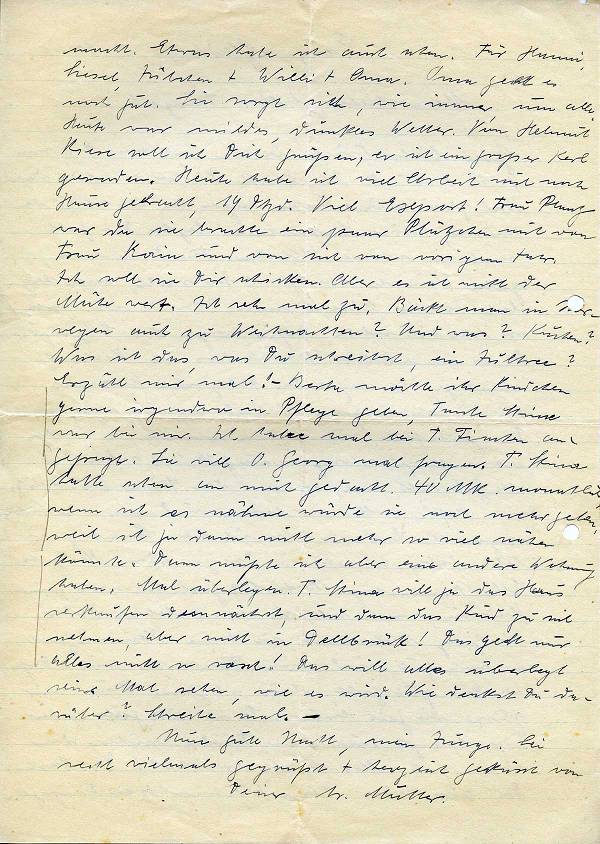 macht. Etwas habe ich auch schon. Für Hanni,
Liesel, Julchen + Willi + Oma. Oma geht es
noch gut. Sie sorgt sich, wie immer um alle.
Heute war mildes, dunkles Wetter. Von Helmut
Kiese soll ich Dich grüßen, er ist ein großer Kerl
geworden. Heute habe ich viel Arbeit mit nach
Hause gebracht, 19 Dtzd. Viel Export! Frau
war da sie brachte ein paar Plätzchen mit von
Frau und von vom vorigen Jahr.
Ich soll sie Dir schicken. Aber es ist nicht der
Mühe wert. Ich seh mal zu. Bäckt man in Nor-
wegen auch zu Weihnachten? Und was? Kuchen?
Was ist das, was Du schreibst, ein Jultree?
Erzähl mir mal! – möchte ihr Kindchen
gerne irgendwo in Pflege geben, Tante Stina
war bei mir. Ich habe mal bei T. an-
gefragt. Sie will O. Georg mal fragen. T. Stina
hatte schon an mich gedacht. 40 MK. monatlich
wenn ich es nähme würde sie noch mehr geben,
weil ich ja dann nicht mehr so viel nähen
könnte. Dann müßte ich aber eine andere Wohnung
haben. Mal überlegen. T. Stina will ja das Haus
verkaufen demnächst, und dann das Kind zu sich
nehmen, aber nicht in Dellbrück! Das geht nur
alles nicht so rasch! Das will alles überlegt
sein. Mal sehen, wie es wird. Wie denkst Du da-
rüber? Schreibe mal. –
Nun gute Nacht, mein Junge. Sei
recht vielmals gegrüßt + herzlich geküsst von
Deiner lb. Mutter.